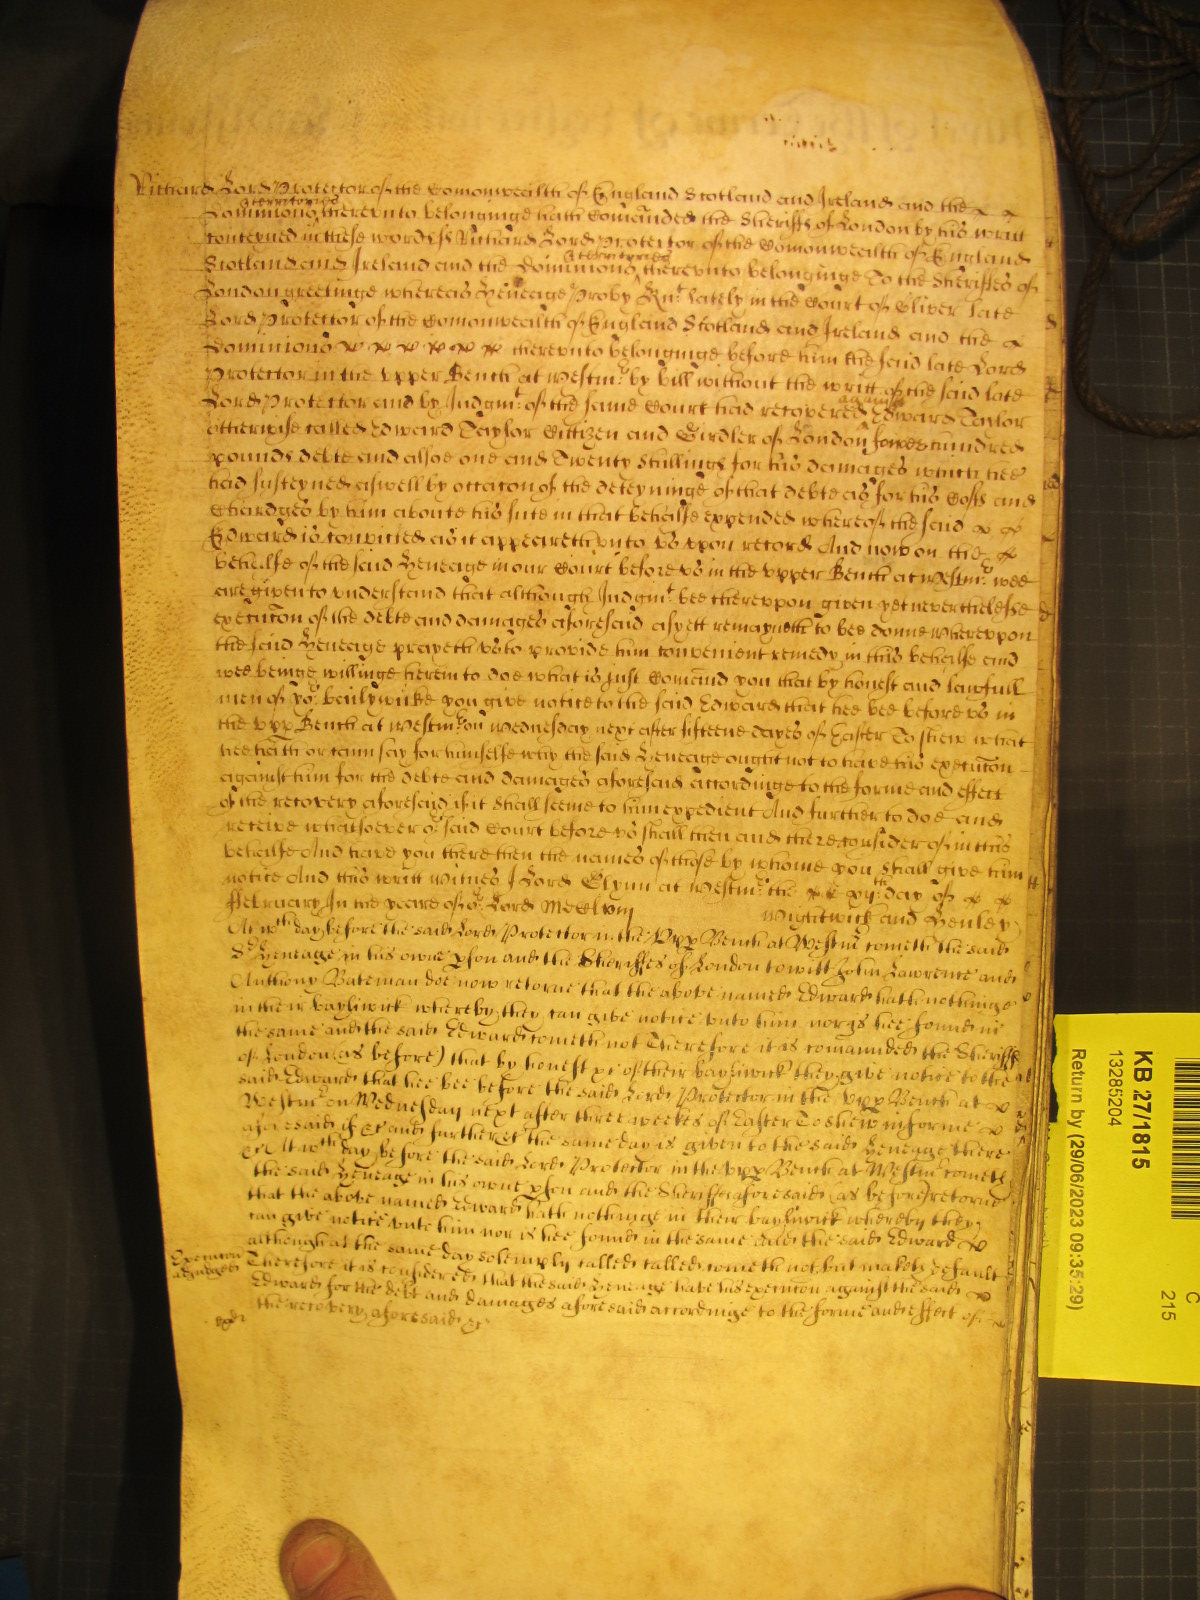 Richard Lord Protector of the Comonwealth of England Scotland and Ireland and the
& territories
Dominions therevnto belonginge hath Comanded the Sheriffs of London by his writt
conteyned in these words ss Richard Lord Protector of the Comonwealth of England
& territories
Scotland and Ireland and the Dominions therevnto belonginge To the Sheriffes of
London greetinge whereas Heneage Proby Knt lately in the Court of Oliver late
Lord Protector of the Comonwealth of England Scotland and Ireland and the
Dominions therevnto belonginge before him the said late Lord
Protector in the vpper Bench at Westmr by bill without the writt of the said late
Lord Protector and by Iudgmt of the same Court had recovered Edward Taylor
against
otherwise called Edward Taylor Cittizen and Girdler of London hundred
pounds debte and alsoe one and Twenty Shillings for his damages which hee
had susteyned aswell by occacon of the deteyninge of that debte as for his Costs and
Chardges by him aboute his sute in that behalfe expended whereof the said
Edward is convicted as it appeareth vnto vs vpon record And now on the
behalfe of the said Heneage in our Court before vs in the vpper Bench at Westmr wee
are given to vnderstand that although Iudgmt bee therevpon given yet neverthelesse
execucon of the debte and damages aforesaid as yett remayneth to bee donne wherevpon
the said Heneage prayeth vs to provide him convenient remedy in this behalfe and
wee beinge willinge herein to doe what is just Comand you that by honest and lawfull
men of yor bailywicke you give notice to the said Edward that hee bee before vs in
the vpp Bench at Westmr on Wednesday next after fifteene dayes of Easter To shew what
hee hath or cann say for himselfe why the said Heneage ought not to have his execucon
against him for the debte and damages aforesaid accordinge to the forme and effect
of the recovery aforesaid if it shall seeme to him expedient And further to doe and
receive whatsoever or said Court before vs shall then and there consider of in this
behalfe And have you there then the names of those by whome you shall give him
notice And this writt witnes I Lord Glynn at Westmr the xijth day of
ffebruary In the yeare of or Lord Mdclviij Wightwick and Henley
At wch day before the said Lord Protector in the Vpp Bench at Westmr cometh the said
Sr Heneage in his owne pson and the Sheriffes of London to witt John Lawrence and
Anthony Bateman doe now retorne that the above named Edward hath nothinge
in their bayliwick whereby they can give notice vnto him nor is hee found in
the same and the said Edward cometh not Therefore it is comannded the Sheriffs
of London (as before) that by honest &c of their bayliwick they give notice to the
said Edward that hee bee before the said Lord Protector in the vpp Bench at
Westmr on Wednesday next after three weekes of Easter To shew in forme
aforesaid if &c and further &c the same day is given to the said Heneage there
&c At wch day before the said Lord Protector in the vpp Bench at Westmr cometh
the said Heneage in his owne pson and the Sheriffs aforesaid (as before) retorne
that the above named Edward hath nothinge in their bayliwick whereby they
can give notice vnto him nor is hee found in the same And the said Edward
although at the same day solemply called called cometh not but maketh default
Execucon
adjudged
Therefore it is considered that the said Heneage have his execucon against the said
Edward for the debt and damages aforesaid accordinge to the forme and effect of
the recovery aforesaid &c
KB 27/1815
13285204
Return by (29/06/2023 09:35:29)
C
215